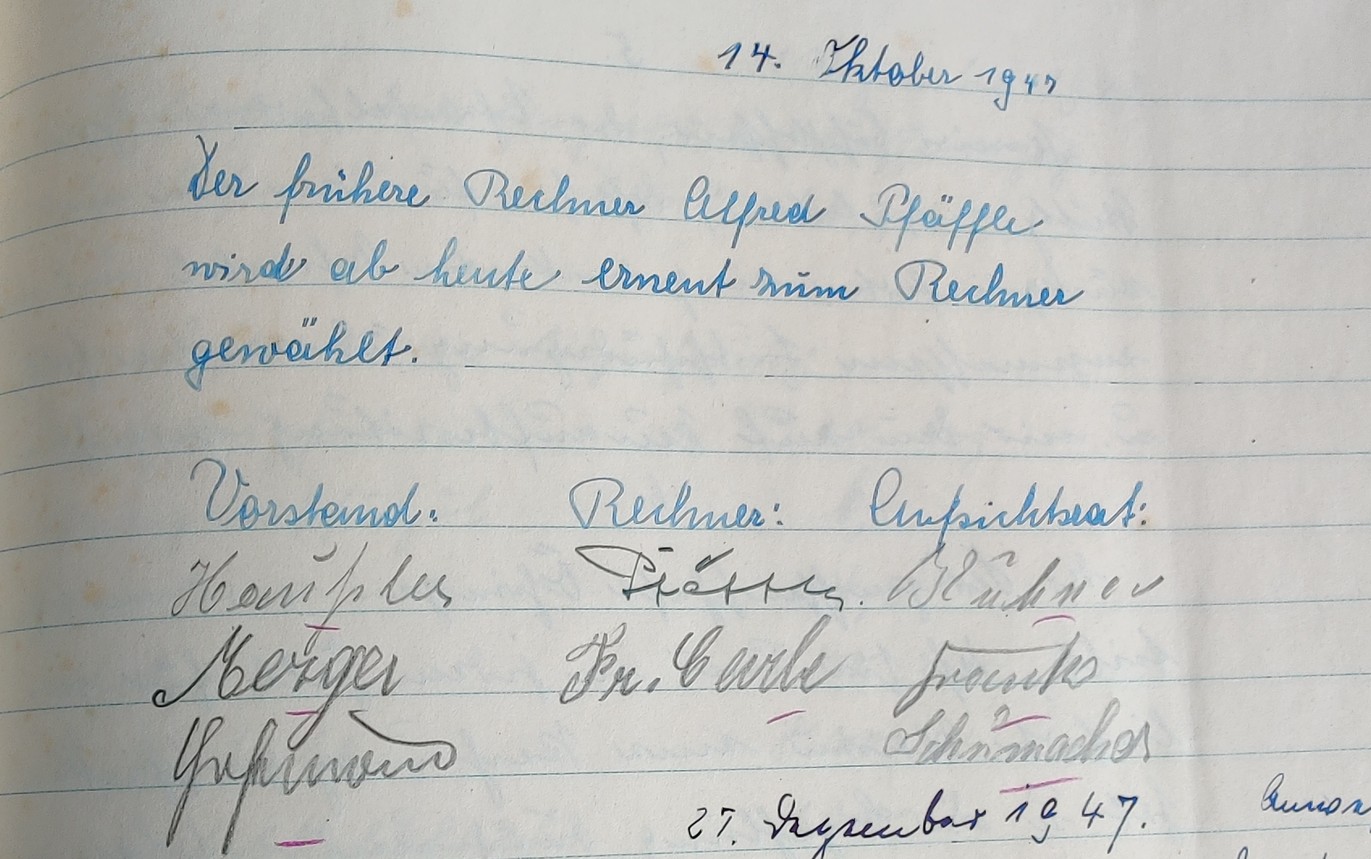 14. Oktober 1947
Der frühere Rechner Alfred Pfäffle
wird ab heute erneut zum Rechner
gewählt.
Vorstand: Rechner: Aufsichtsrat:
Merger Fr. Carle Frank
Schumacher
27. Dezember 1947.